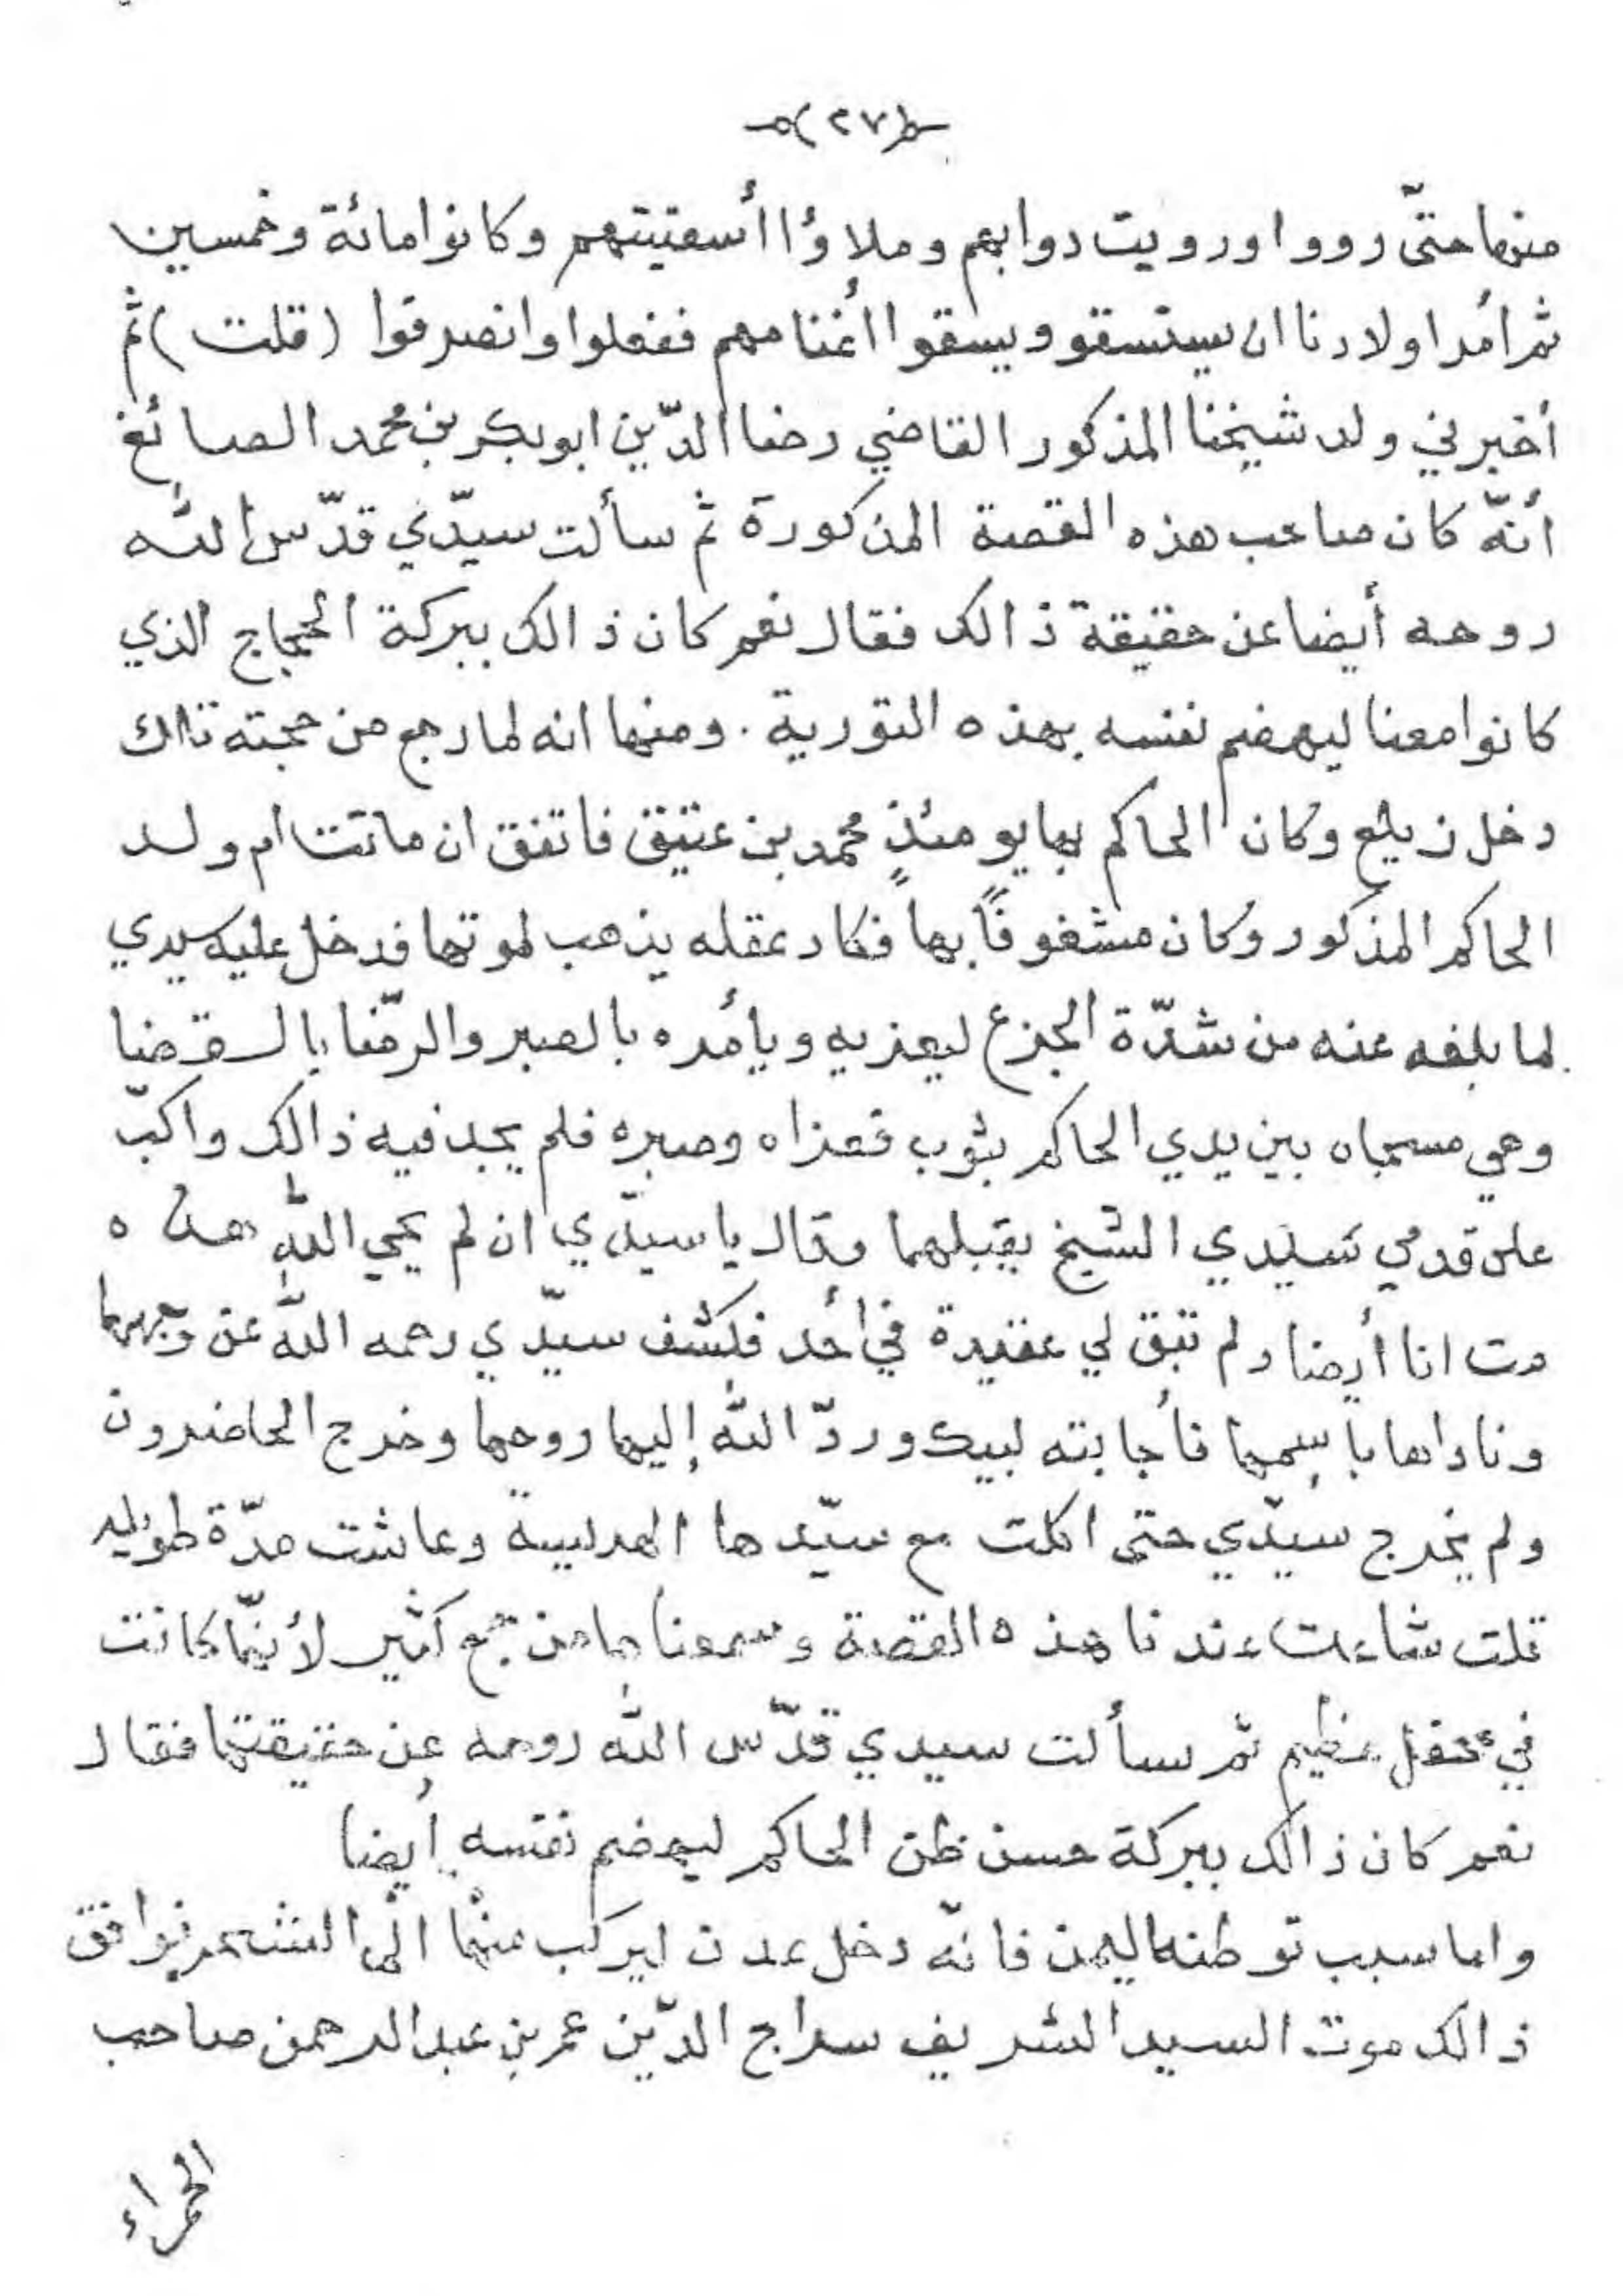 (٢٧)
منها حتّى رووا ورويت دوابهم وملاؤا أسقيتهم وكانوا مائة وخمسين
ثم أمر اولادنا ان يستسقو ويسقوا أغنامهم ففعلوا وانصرفوا (قلت) ثم
أخبرني ولد شيخنا المذكور القاضي رضا الدّين ابو بكر بن محمد الصائغ
أنّه كان صاحب هذه القصة المذكورة ثم سألت سيّدي قدّس الله
روحه أيضا عن حقيقة ذالك فقال نعم كان ذالك ببركة الحجاج الذي
كانوا معنا ليهضم نفسه بهذه التورية . ومنها انه لما رجع من حجته تالك
دخل زيلع وكان الحاكم بها يومئذٍ محمد بن عتيق فاتفق ان ماتت ام ولد
الحاكم المذكور وكان مشغوفًا بها فكاد عقله يذهب لموتها فدخل عليه سيدي
لما بلغه عنه من شدّة الجزع ليعزيه ويأمره بالصبر والرّضا بالقضا
وهي مسجاه بين يدي الحاكم بثوب فعزاه وصبره فلم يجد فيه ذالك واكبّ
على قدمي سيدي الشيخ يقبلهما وقال يا سيّدي ان لم يحي الله هذه
مت انا أيضا ولم تبق لي عقيدة في أحد فكشف سيّدي رحمه الله عن وجهها
وناداها بإسمها فأجابته لبيك وردّ الله إليها روحها وخرج الحاضرون
ولم يخرج سيّدي حتى اكلت مع سيّدها الهريسة وعاشت مدّة طويله
قلت شاءت عندنا هذه القصة وسمعناها من جمع كثير لأنّها كانت
في محفل عظيم ثم سألت سيدي قدّس الله روحه عن حقيقتها فقال
نعم كان ذالك ببركة حسن ظن الحاكم ليهضم نفسه أيضا
واما سبب توطنه اليمن فانّه دخل عدن ليركب منها الى الشحر فوافق
ذالك موت السيد الشريف سراج الدّين عمر بن عبد الرحمن صاحب
الحمراء